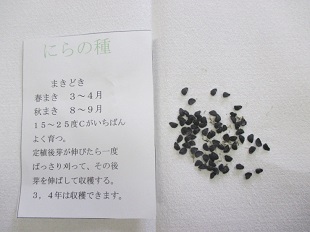 にらの種
まきどき
春まき　３～４月
秋まき　８～９月
１５～２５度Cがいちばん
よく育つ。
定植後芽が伸びたら一度
ばっさり刈って、その後
芽を伸ばして収穫する。
３，４年は収穫できます。